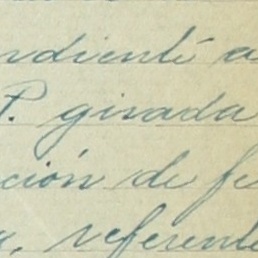 ndiente a
P. girada
ción de fe
a, referente